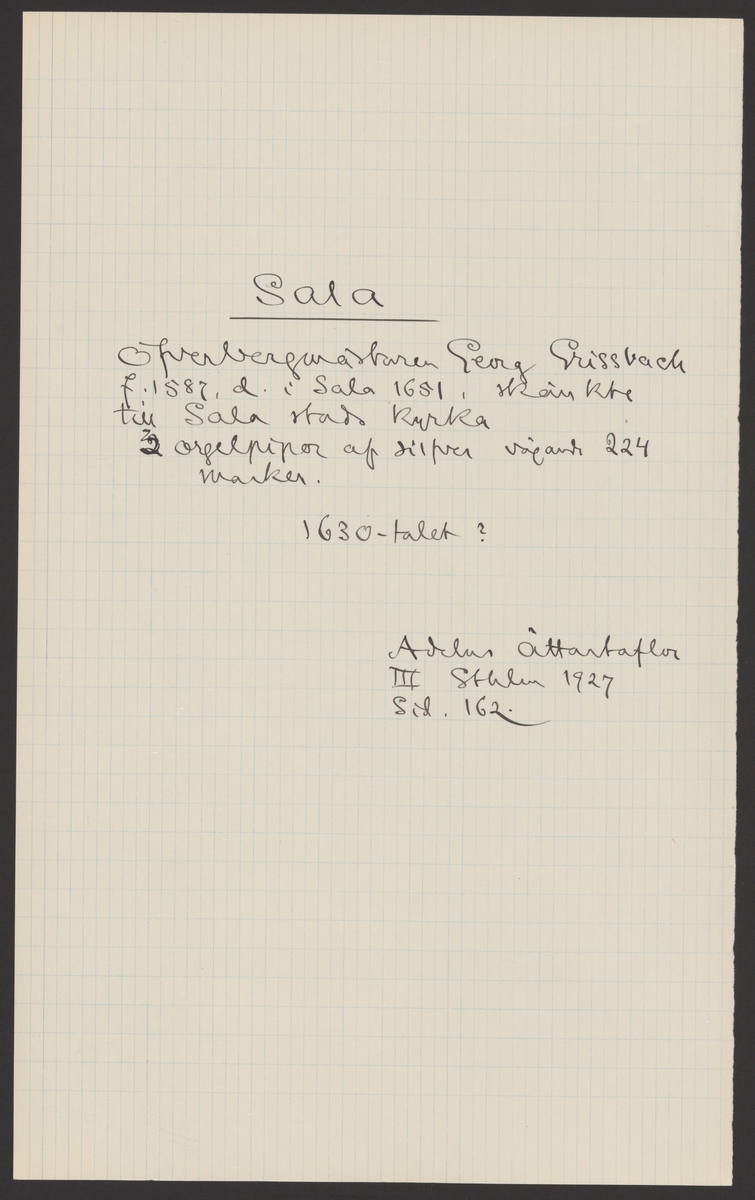 Sala
Öfverbergmästaren Georg Grissbach
f. 1587, d. i Sala 1651, skänkte
till Sala stads kyrka
2 orgelpipor af silfver vägande 224
marker.
1630-talet ?
Adelns Ättartaflor
III Sthlm 1927
Sid. 162.